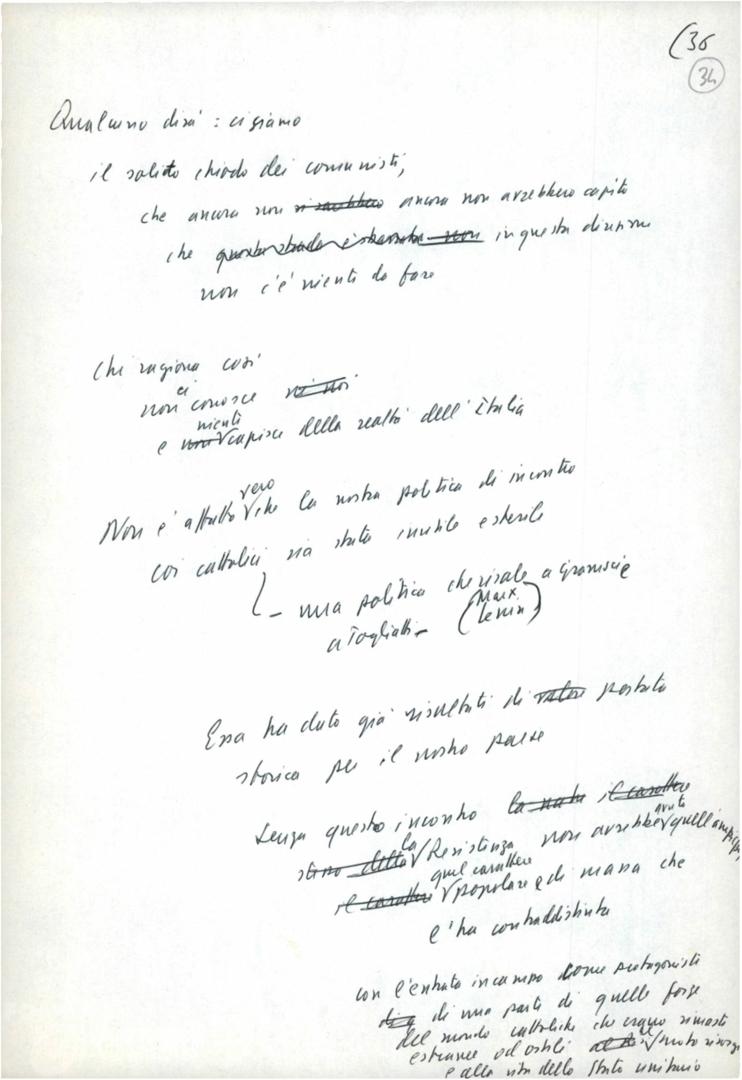 (36
34
Qualcuno dirà: ci siamo
il solito chiodo dei comunisti,
che ancora non ancora non avrebbero capito
che questa strada è sbarrata non in questa direzione
non c'è niente da fare
Chi ragiona così
non ci conosce
e niente capisce della realtà dell'Italia
Non è affatto vero che la nostra politica di incontro
coi cattolici sia stata inutile e sterile
– una politica che risale a Gramsci e
a Togliatti – (Marx Lenin)
Essa ha dato già risultati di valore portata
storica per il nostro paese
Senza questo incontro il carattere
stesso della la Resistenza non avrebbe avuto quell'
il carattere quel carattere popolare e di massa che
l'ha contraddistinta
con l'entrata in campo come protagonista
di una parte di quelle forze
del mondo cattolico che erano rimaste
estranee od ostili moto
e alla vita dello Stato unitario